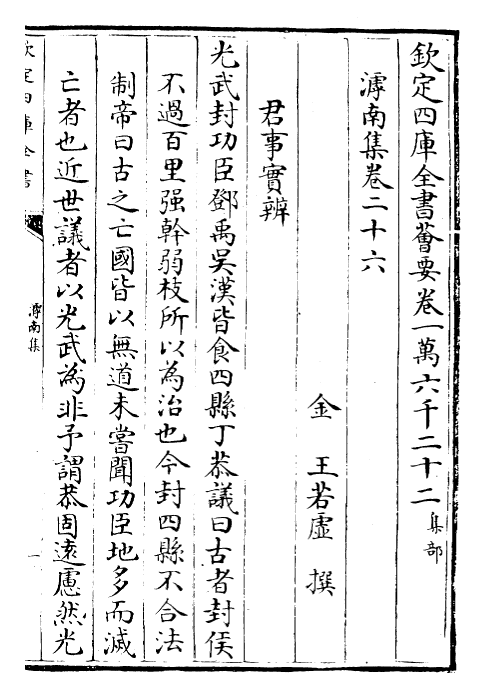 欽定四庫全書薈要卷一萬六千二十二集部
滹南集卷二十六
金　王若虛　撰
君事實辨
光武封功臣鄧禹吳漢皆食四縣丁恭議曰古者封侯
不過百里强幹弱枝所以為治也今封四縣不合法
制帝曰古之亡國皆以無道未嘗聞功臣地多而滅
亡者也近世議者以光武為非予謂恭固遠慮然光
欽定四庫全書
滹南集
一